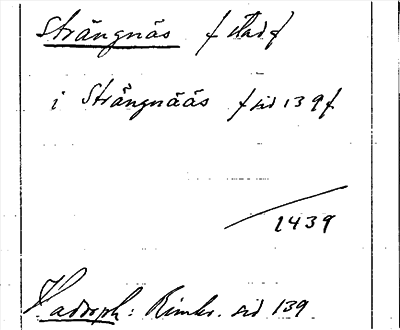 Strängnäs f stad f
i Strängnääs f sid 139 f
1439
Hadorph: Rimkr. sid 139